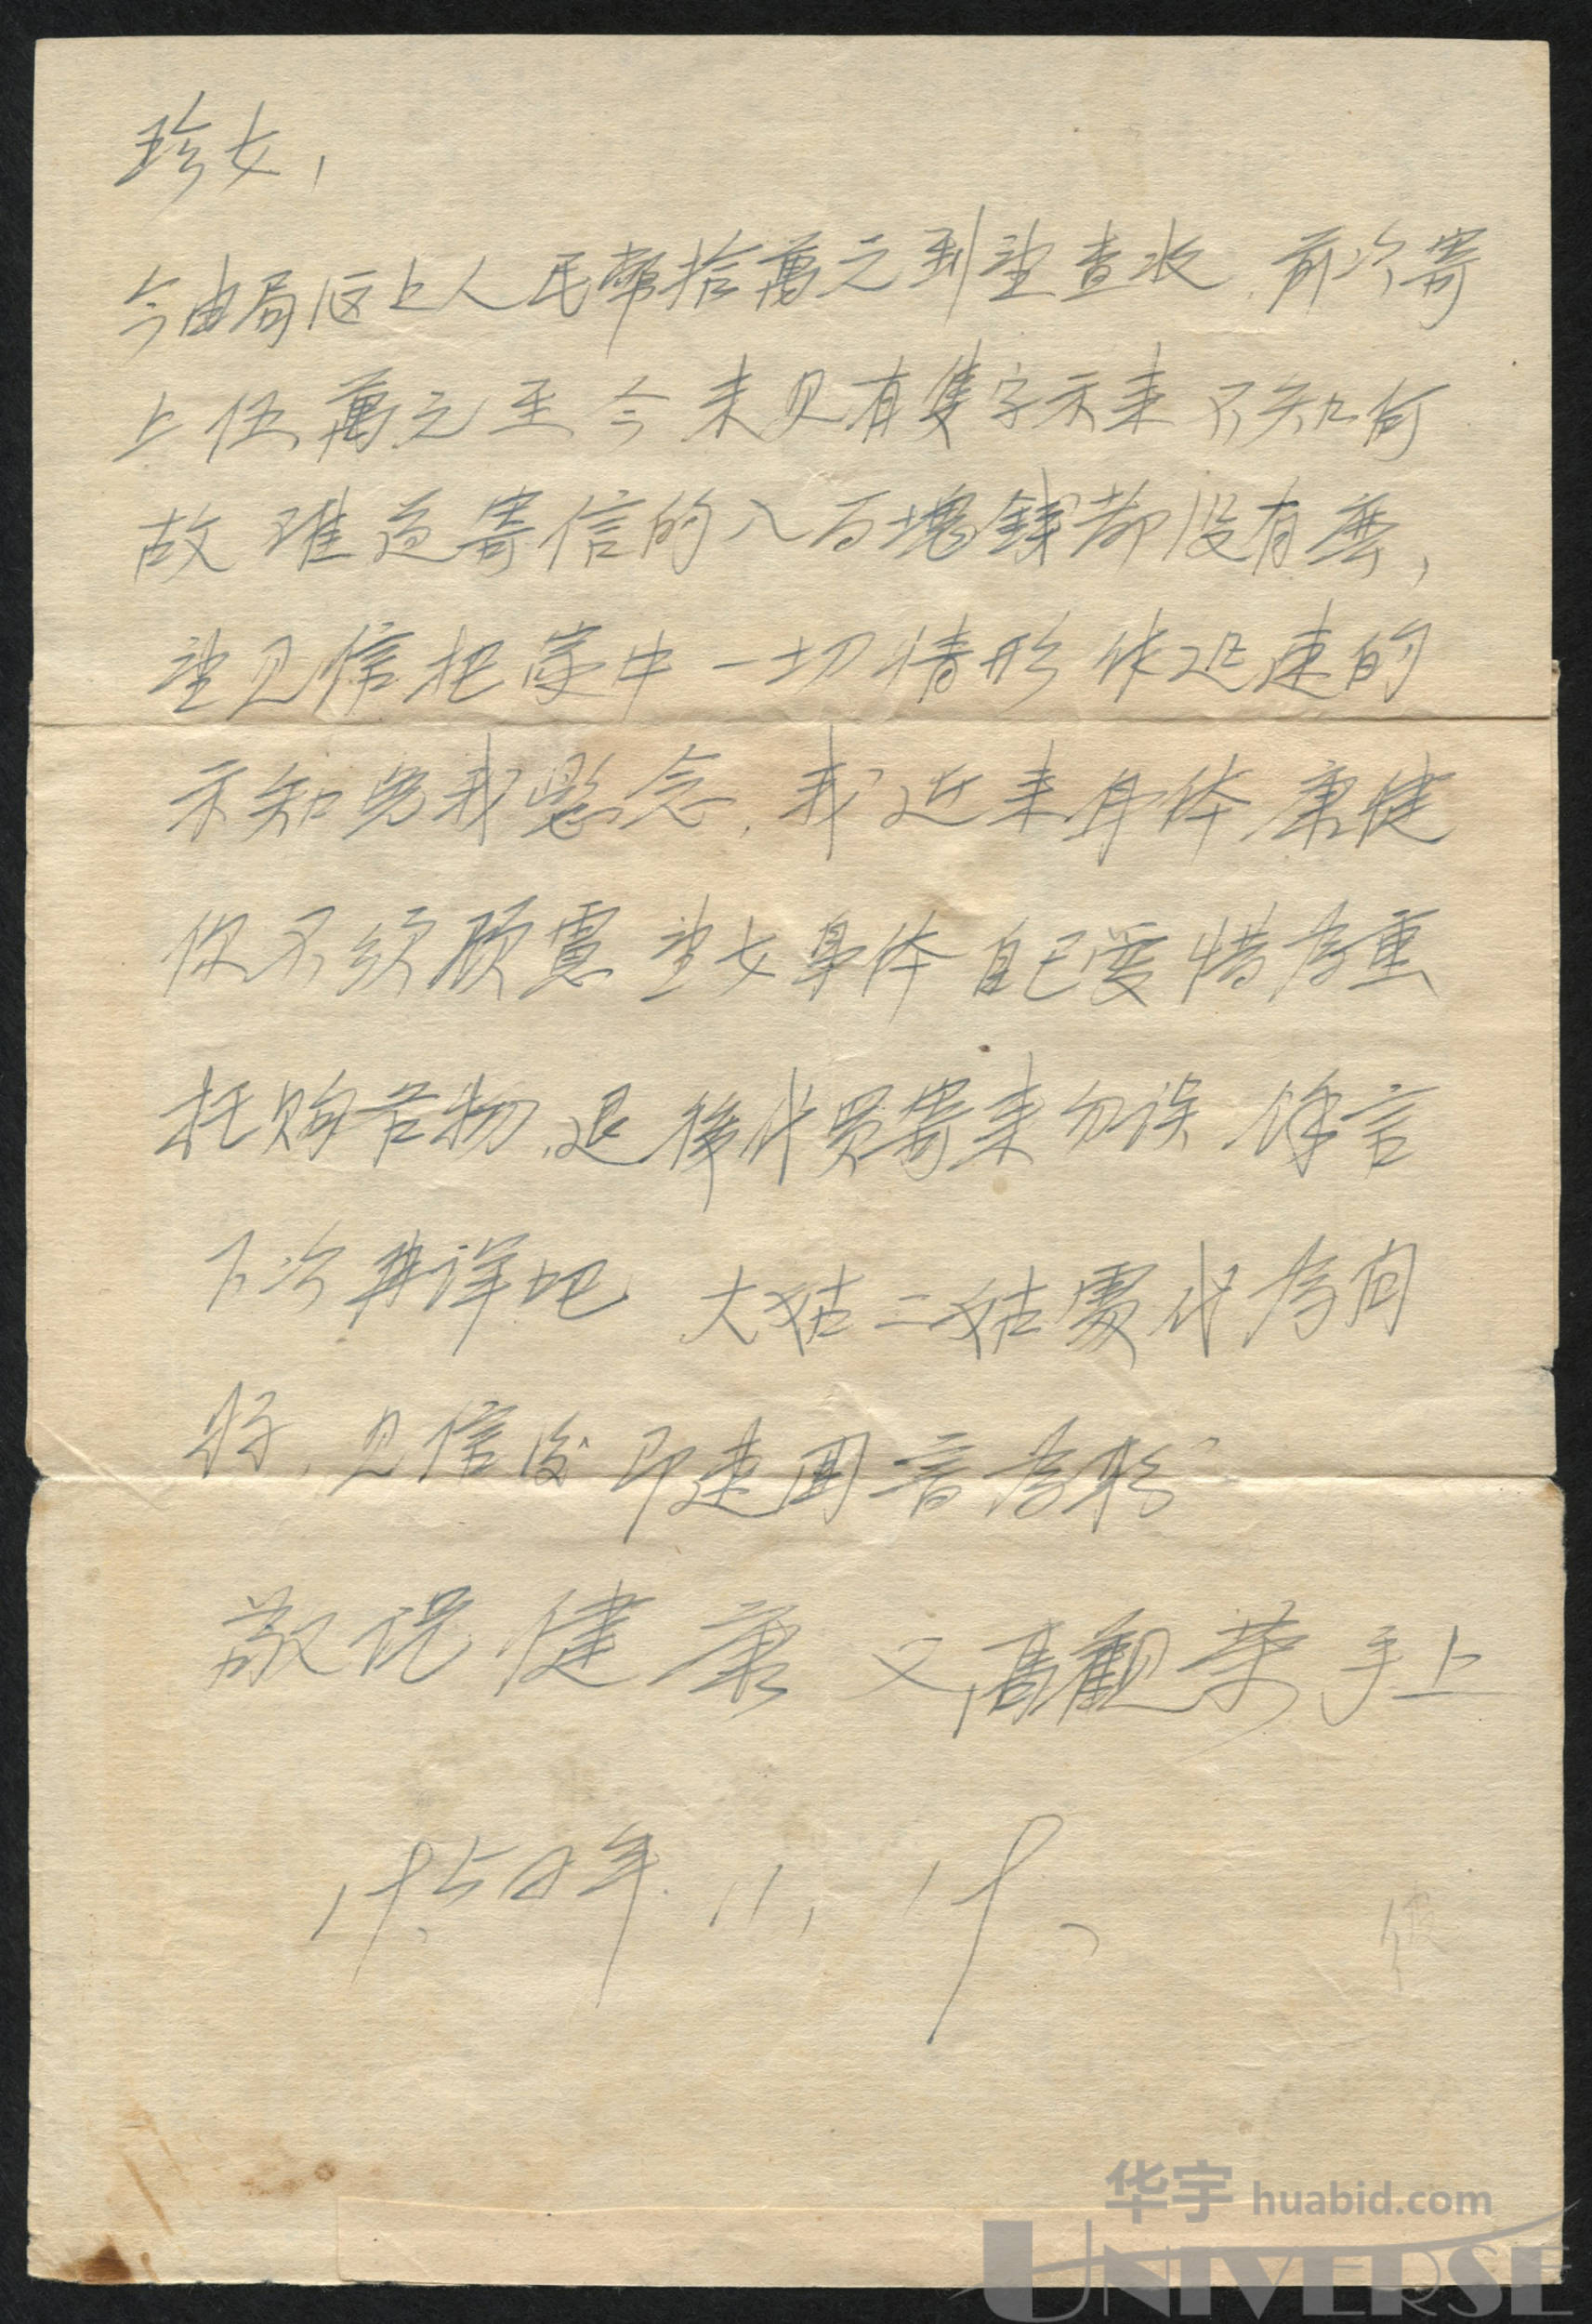 珍女,
今由局汇上人民幣拾萬元到望查收.前次寄
上伍萬元至今未见有隻字示来不知何
故难道寄信的八百塊錢都没有嗎,
望见信把家中一切情形火迅速的
示知免我懸念.我近来身体康健
你不须顾慮望女身体自己爱惜为重
托购各物.退後代買寄来勿误.馀言
下次再详吧 大姑二姑需代为问
好,见信后即速回音为盼
敬祝健康 父高觀荣手上
195四年.11.19、
华宇 huabid.com
UNIVERSE